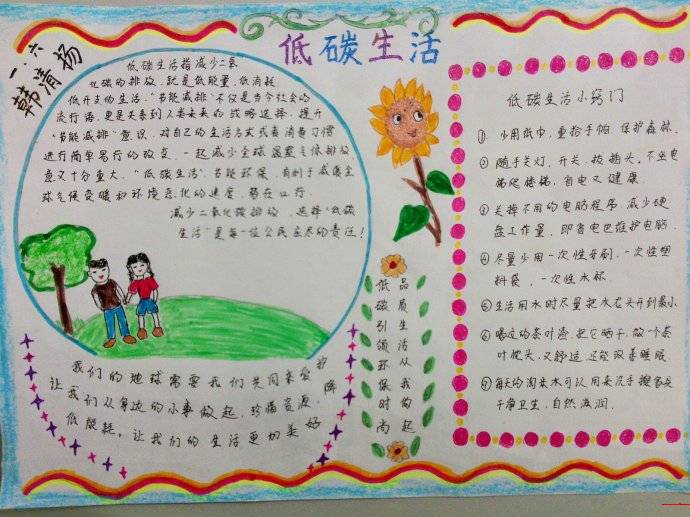 低碳生活
一.六
韩清杨
低碳生活指减少二氧
化碳的排放,就是低能量,低消耗
低开支的生活,"节能减排"不仅是当今社会的
流行语,更是关系到人类未来的战略选择,提升
"节能减排"意识,对自己的生活方式或者消费习惯
进行简单易行的改变,一起减少全球温室气体排放,
意义十分重大。"低碳生活"节能环保,有利于减缓全
球气候变暖和环境恶化的速度,势在必行.
减少二氧化碳排放,选择"低碳
生活"是每一位公民应尽的责任!
我们的地球需要我们共同来爱护
让我们从身边的小事做起,珍惜资源,降
低能耗,让我们的生活更加美好
低碳引领环保时尚
品质生活从我的起
低碳生活小窍门
① 少用纸巾,重拾手帕,保护森林.
② 随手关灯,开关,拔插头,不坐电
梯爬楼梯,省电又健康
③ 关掉不用的电脑程序,减少硬
盘工作量,即省电也维护电脑.
④ 尽量少用一次性牙刷,一次性塑
料袋,一次性水杯.
⑤ 生活用水时尽量把水在头开到最小.
⑥ 喝过的茶叶渣,把它晒干,做一个茶
叶枕头,又舒适,还能改善睡眠
⑦ 每天的淘米水可以用来洗手擦家具
干净卫生,自然滋润.